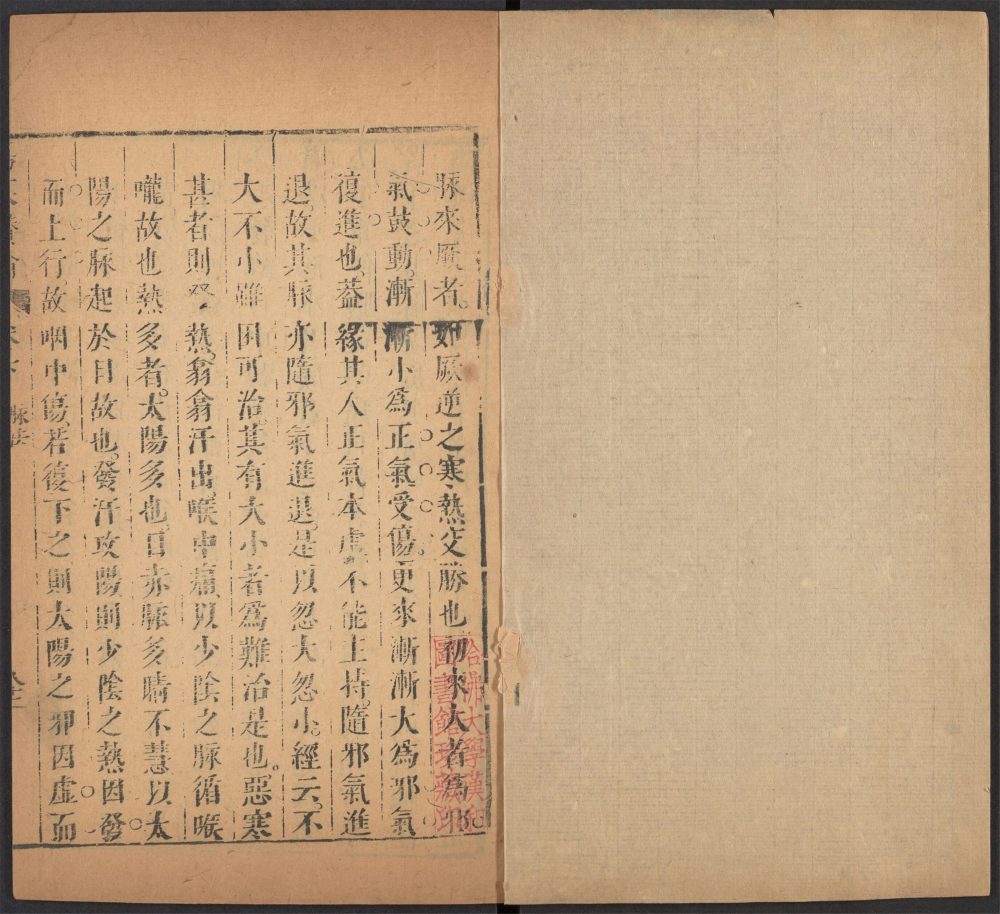 脉來厥者如厥逆之寒熱交勝也初來大者為邪
氣鼓動漸漸小為正氣受傷更來漸漸大為邪氣
復進也葢緣其人正氣本虛不能上持隨邪氣進
退故其脉亦隨邪氣進退是以忽大忽小經云不
大不小雖困可治其有大小者為難治是也惡寒
甚者則翕翕汗出喉中痛以少陰之脉循喉
嚨故也熱多者太陽多也目赤脉多睛不慧以太
陽之脉起於目故也發汗攻陽則少陰之熱因發
而上行故咽中傷若復下之則太陽之邪因虛而
脉法
哈佛大學漢和
圖書館珍藏印